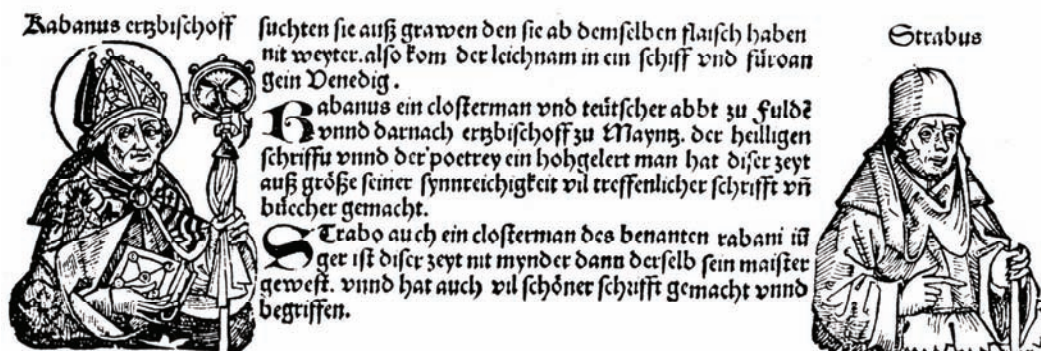 Rabanus ertzbischoff
suchten sie auß grawen den sie ab demselben flaisch haben
nit weyter. also kom der leichnam in ein schiff vnd füroan
gein Venedig.
Rabanus ein closterman vnd teütscher abbt zu Fuldē
vnnd darnach ertzbischoff zu Mayntz. der heilligen
schrifftt vnnd der poetrey ein hohgelert man hat diser zeyt
auß größe seiner synnreichigkeit vil treffenlicher schrifft vn̄
büecher gemacht.
STrabo auch ein closterman des benanten rabani iū
ger ist diser zeyt nit mynder dann derselb sein maister
gewest. vnnd hat auch vil schöner schrifft gemacht vnnd
begriffen.
Strabus